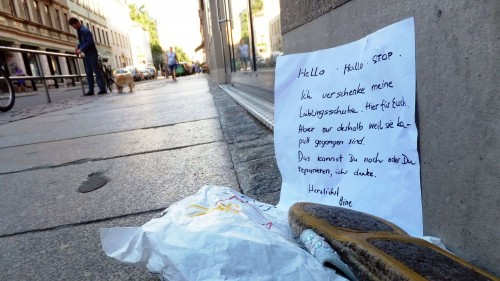 Hello . Hallo . STOP .
Ich verschenke meine
Lieblingsschuhe. Hier für Euch.
Aber nur deshalb weil sie ka-
putt gegangen sind.
Das kannst Du noch oder Du
reparieren, ich danke.
Herzlichst